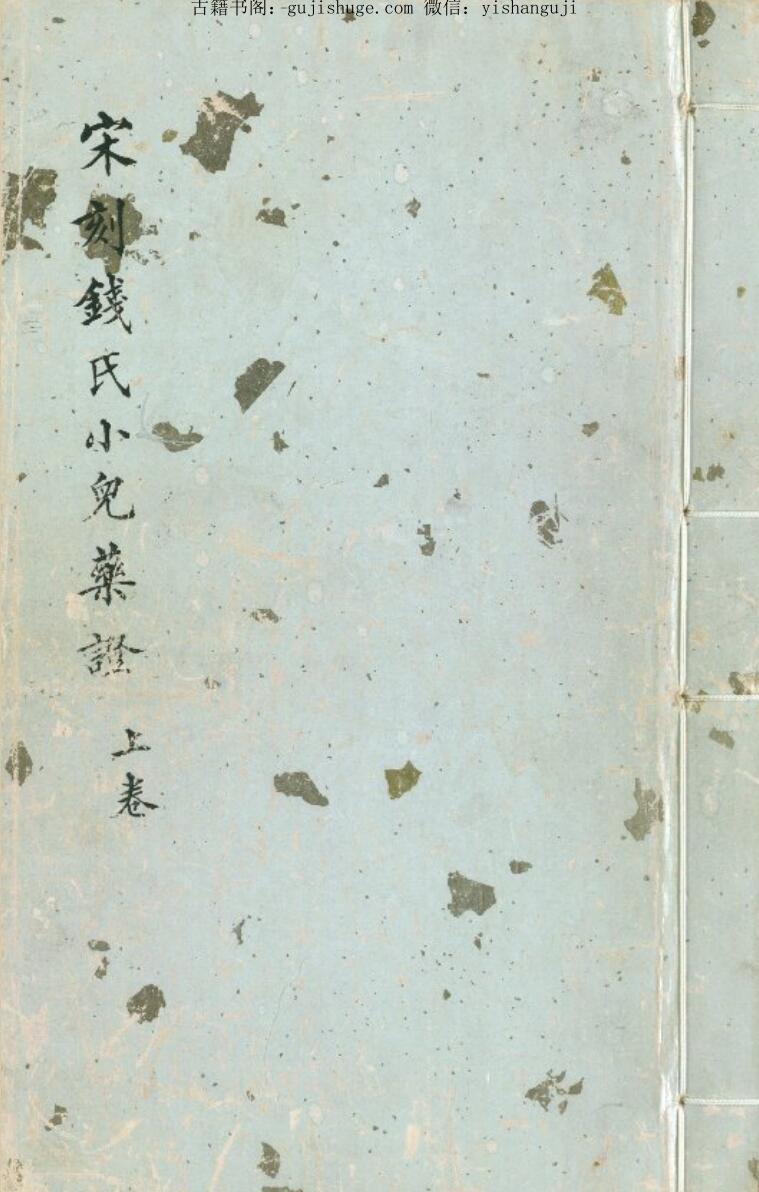 古籍书阁：-gujishuge.com 微信：yishanguji
宋刻錢氏小兒藥證
上卷